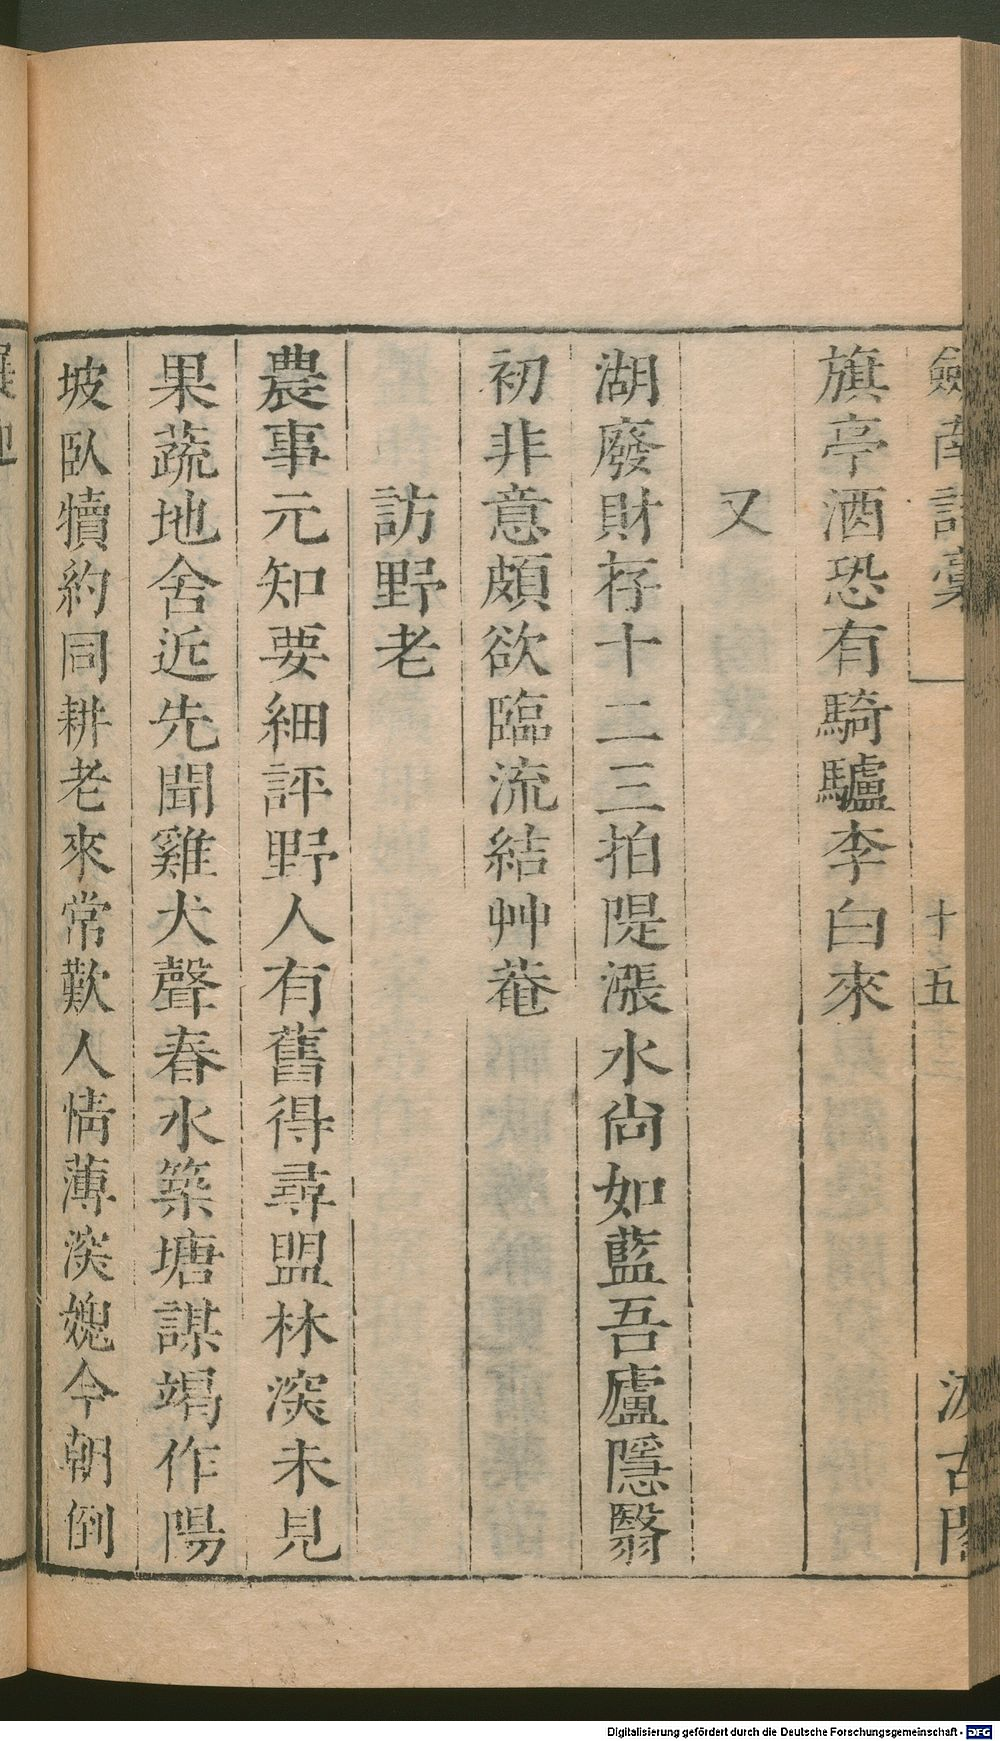 劍南詩稾
十五
汲古閣
旗亭酒恐有騎驢李白來
又
湖廢財存十二三拍隄漲水尙如藍吾廬隱翳
初非意頗欲臨流結艸菴
訪野老
農事元知要細評野人有舊得尋盟林深未見
果蔬地舍近先聞雞犬聲春水築塘謀堨作陽
坡臥犢約同耕老來常歎人情薄深媿今朝倒
Digitalisierung gefördert durch die Deutsche Forschungsgemeinschaft - DFG